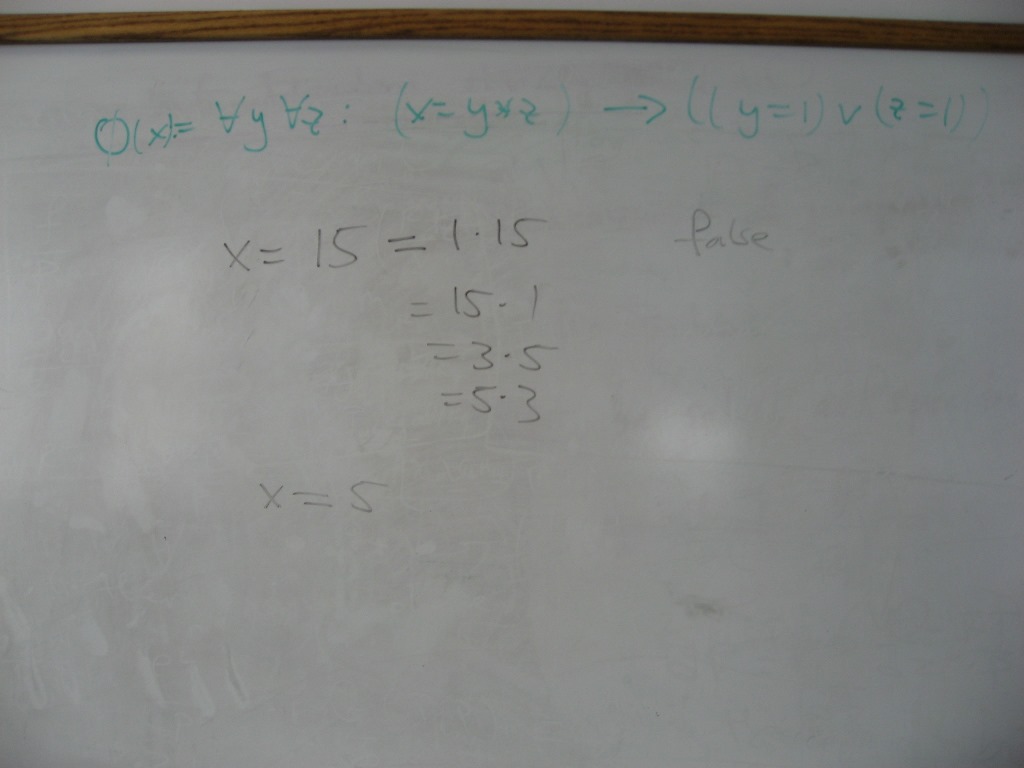 ∅(x):= ∀y ∀z: (x=y*z) → ((y=1) ∨ (z=1))
x = 15 = 1·15 false
= 15·1
= 3·5
= 5·3
x = 5